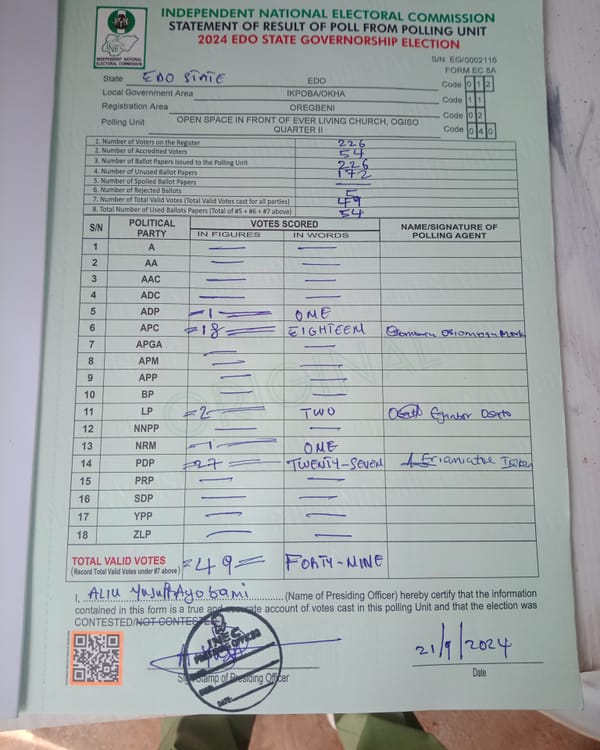 INDEPENDENT NATIONAL ELECTORAL COMMISSION
STATEMENT OF RESULT OF POLL FROM POLLING UNIT
2024 EDO STATE GOVERNORSHIP ELECTION
INEC
INDEPENDENT NATIONAL
ELECTORAL COMMISSION
S/N: EG/0002116
FORM EC 8A
State EDO STATE EDO Code 0 1 2
Local Government Area IKPOBA/OKHA Code 1 1
Registration Area OREGBENI Code 0 2
Polling Unit OPEN SPACE IN FRONT OF EVER LIVING CHURCH, OGISO QUARTER II Code 0 4 0
1. Number of Voters on the Register 226
2. Number of Accredited Voters 54
3. Number of Ballot Papers Issued to the Polling Unit 226
4. Number of Unused Ballot Papers 172
5. Number of Spoiled Ballot Papers —
6. Number of Rejected Ballots 5
7. Number of Total Valid Votes (Total Valid Votes cast for all parties) 49
8. Total Number of Used Ballots Papers (Total of #5 + #6 + #7 above) 54
S/N POLITICAL PARTY VOTES SCORED NAME/SIGNATURE OF POLLING AGENT
IN FIGURES IN WORDS
1 A — —
2 AA — —
3 AAC — —
4 ADC — —
5 ADP =1= ONE
6 APC =18= EIGHTEEM
7 APGA — —
8 APM — —
9 APP — —
10 BP — —
11 LP =2= TWO Osato
12 NNPP — —
13 NRM =1= ONE
14 PDP =27= TWENTY-SEVEN
15 PRP — —
16 SDP — —
17 YPP — —
18 ZLP — —
TOTAL VALID VOTES =49= FORTY-NINE
(Record Total Valid Votes under #7 above)
I, ALIU Yusuff Ayobami (Name of Presiding Officer) hereby certify that the information
contained in this form is a true and accurate account of votes cast in this polling Unit and that the election was
CONTESTED/NOT CONTESTED
INEC
PRESIDING OFFICER
DATE:
21/9/2024
Sign/Stamp of Presiding Officer
Date
ORIGINAL